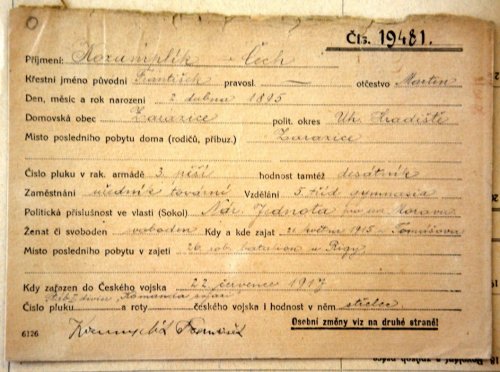 Čís. 19481.
Příjmení: Rozumplík Čech
Křestní jméno původní František pravosl. — otčestvo Martin
Den, měsíc a rok narození 2 dubna 1895
Domovská obec Zarazice polit. okres Uh. Hradiště
Místo posledního pobytu doma (rodičů, příbuz.)
Zarazice
Číslo pluku v rak. armádě 3. pěší hodnost tamtéž desátník
Zaměstnání úředník tovární Vzdělání 5 tříd gymnasia
Politická příslušnost ve vlasti (Sokol) Nár. Jednota Morava
Ženat či svoboden svoboden Kdy a kde zajat 21 květnu 1915 u Tomašova
Místo posledního pobytu v zajetí 26 rob. batalion u Rigy
Kdy zařazen do Českého vojska 22 července 1917
Číslo pluku a roty českého vojska i hodnost v něm střelec
6126 Osobní změny viz na druhé straně!